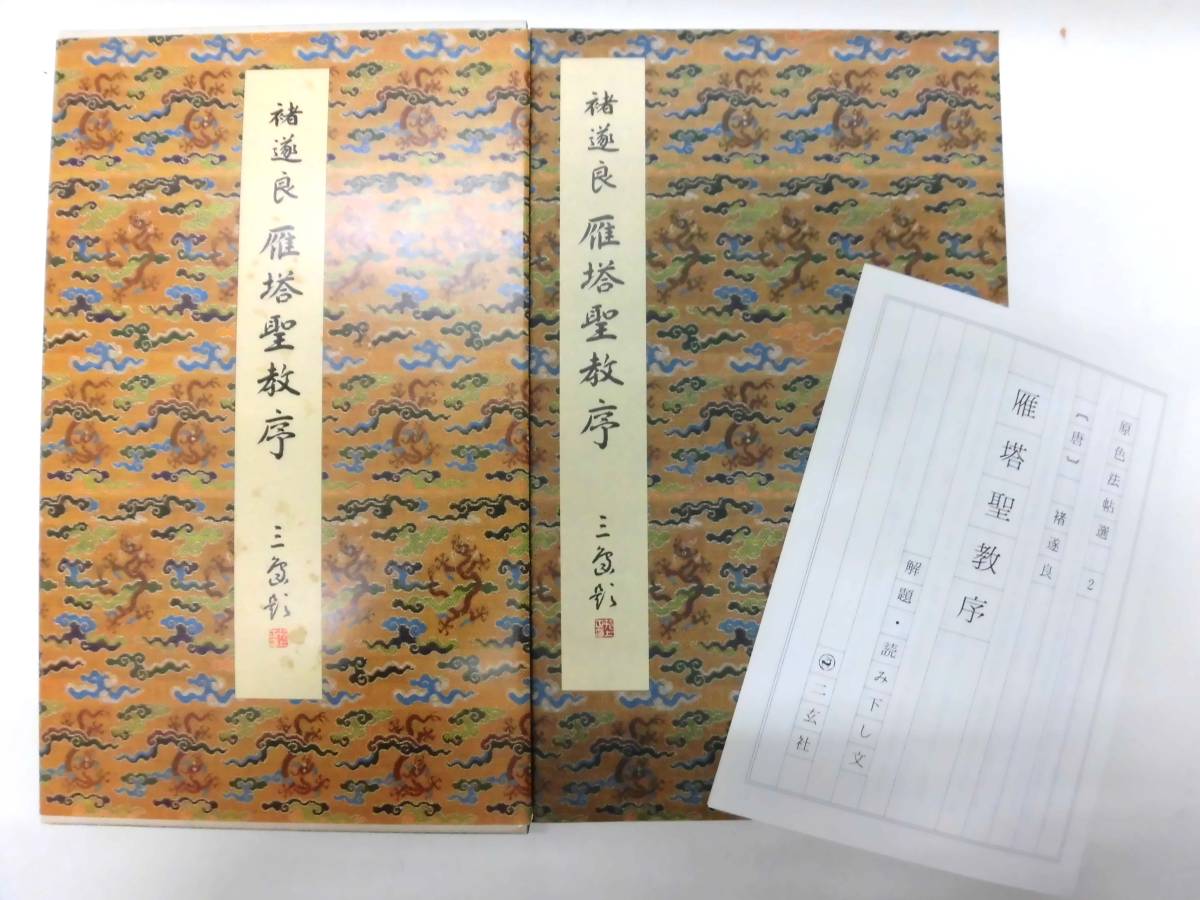 褚遂良 雁塔聖教序
褚遂良 雁塔聖教序
原色法帖選 2
〔唐〕 褚遂良
雁塔聖教序
解題・読み下し文
二玄社